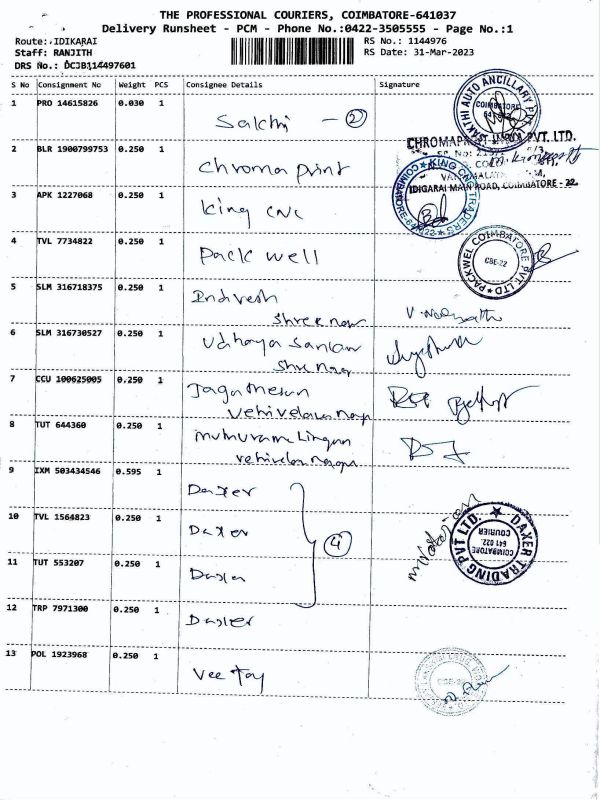 THE PROFESSIONAL COURIERS, COIMBATORE-641037
Delivery Runsheet - PCM - Phone No.:0422-3505555 - Page No.:1
Route: IDIKARAI RS No.: 1144976
Staff: RANJITH RS Date: 31-Mar-2023
DRS No.: DCJB114497601
S No Consignment No Weight PCS Consignee Details Signature
1 PRO 14615826 0.030 1 Sakthi - 2
2 BLR 1900799753 0.250 1 Chroma print
3 APK 1227068 0.250 1 King CNC
4 TVL 7734822 0.250 1 Pack well
5 SLM 316718375 0.250 1
Shree nagar
6 SLM 316730527 0.250 1
7 CCU 100625005 0.250 1
8 TUT 644360 0.250 1
9 IXM 503434546 0.595 1 Daxer
10 TVL 1564823 0.250 1 Daxer
4
11 TUT 553207 0.250 1 Daxer
12 TRP 7971300 0.250 1 Daxer
13 POL 1923968 0.250 1 Vee Jay
SAKTHI AUTO ANCILLARY
COIMBATORE
CHROMAPRINT INDIA PVT. LTD.
IDIGARAI MAIN ROAD, COIMBATORE - 22.
KING CNC TRADERS
COIMBATORE-641022
PACKWEL COIMBATORE PVT. LTD
CBE-22
DAXER TRADING PVT LTD.
COIMBATORE
641 022.
COURIER